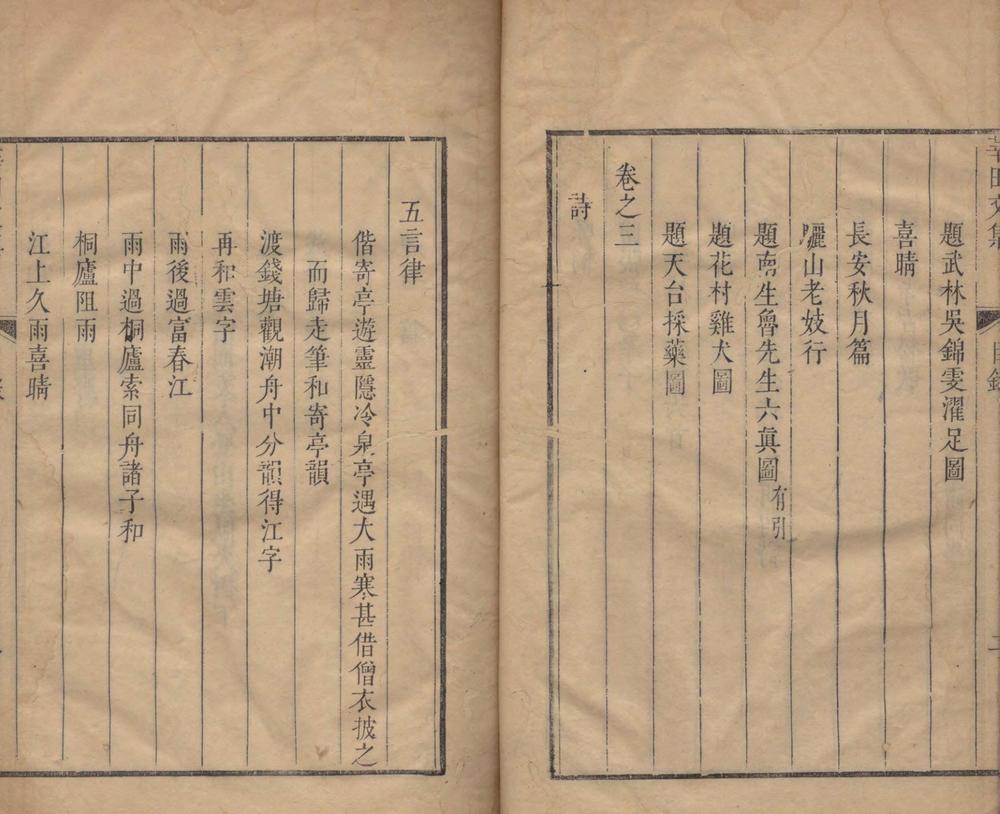 題武林吳錦雯濯足圖
喜晴
長安秋月篇
驪山老妓行
題南生魯先生六眞圖有引
題花村雞犬圖
題天台採藥圖
卷之三
詩
五言律
偕寄亭遊靈隱冷泉亭遇大雨寒甚借僧衣披之
而歸走筆和寄亭韻
渡錢塘觀潮舟中分韻得江字
再和雲字
雨後過富春江
雨中過桐廬索同舟諸子和
桐廬阻雨
江上久雨喜晴